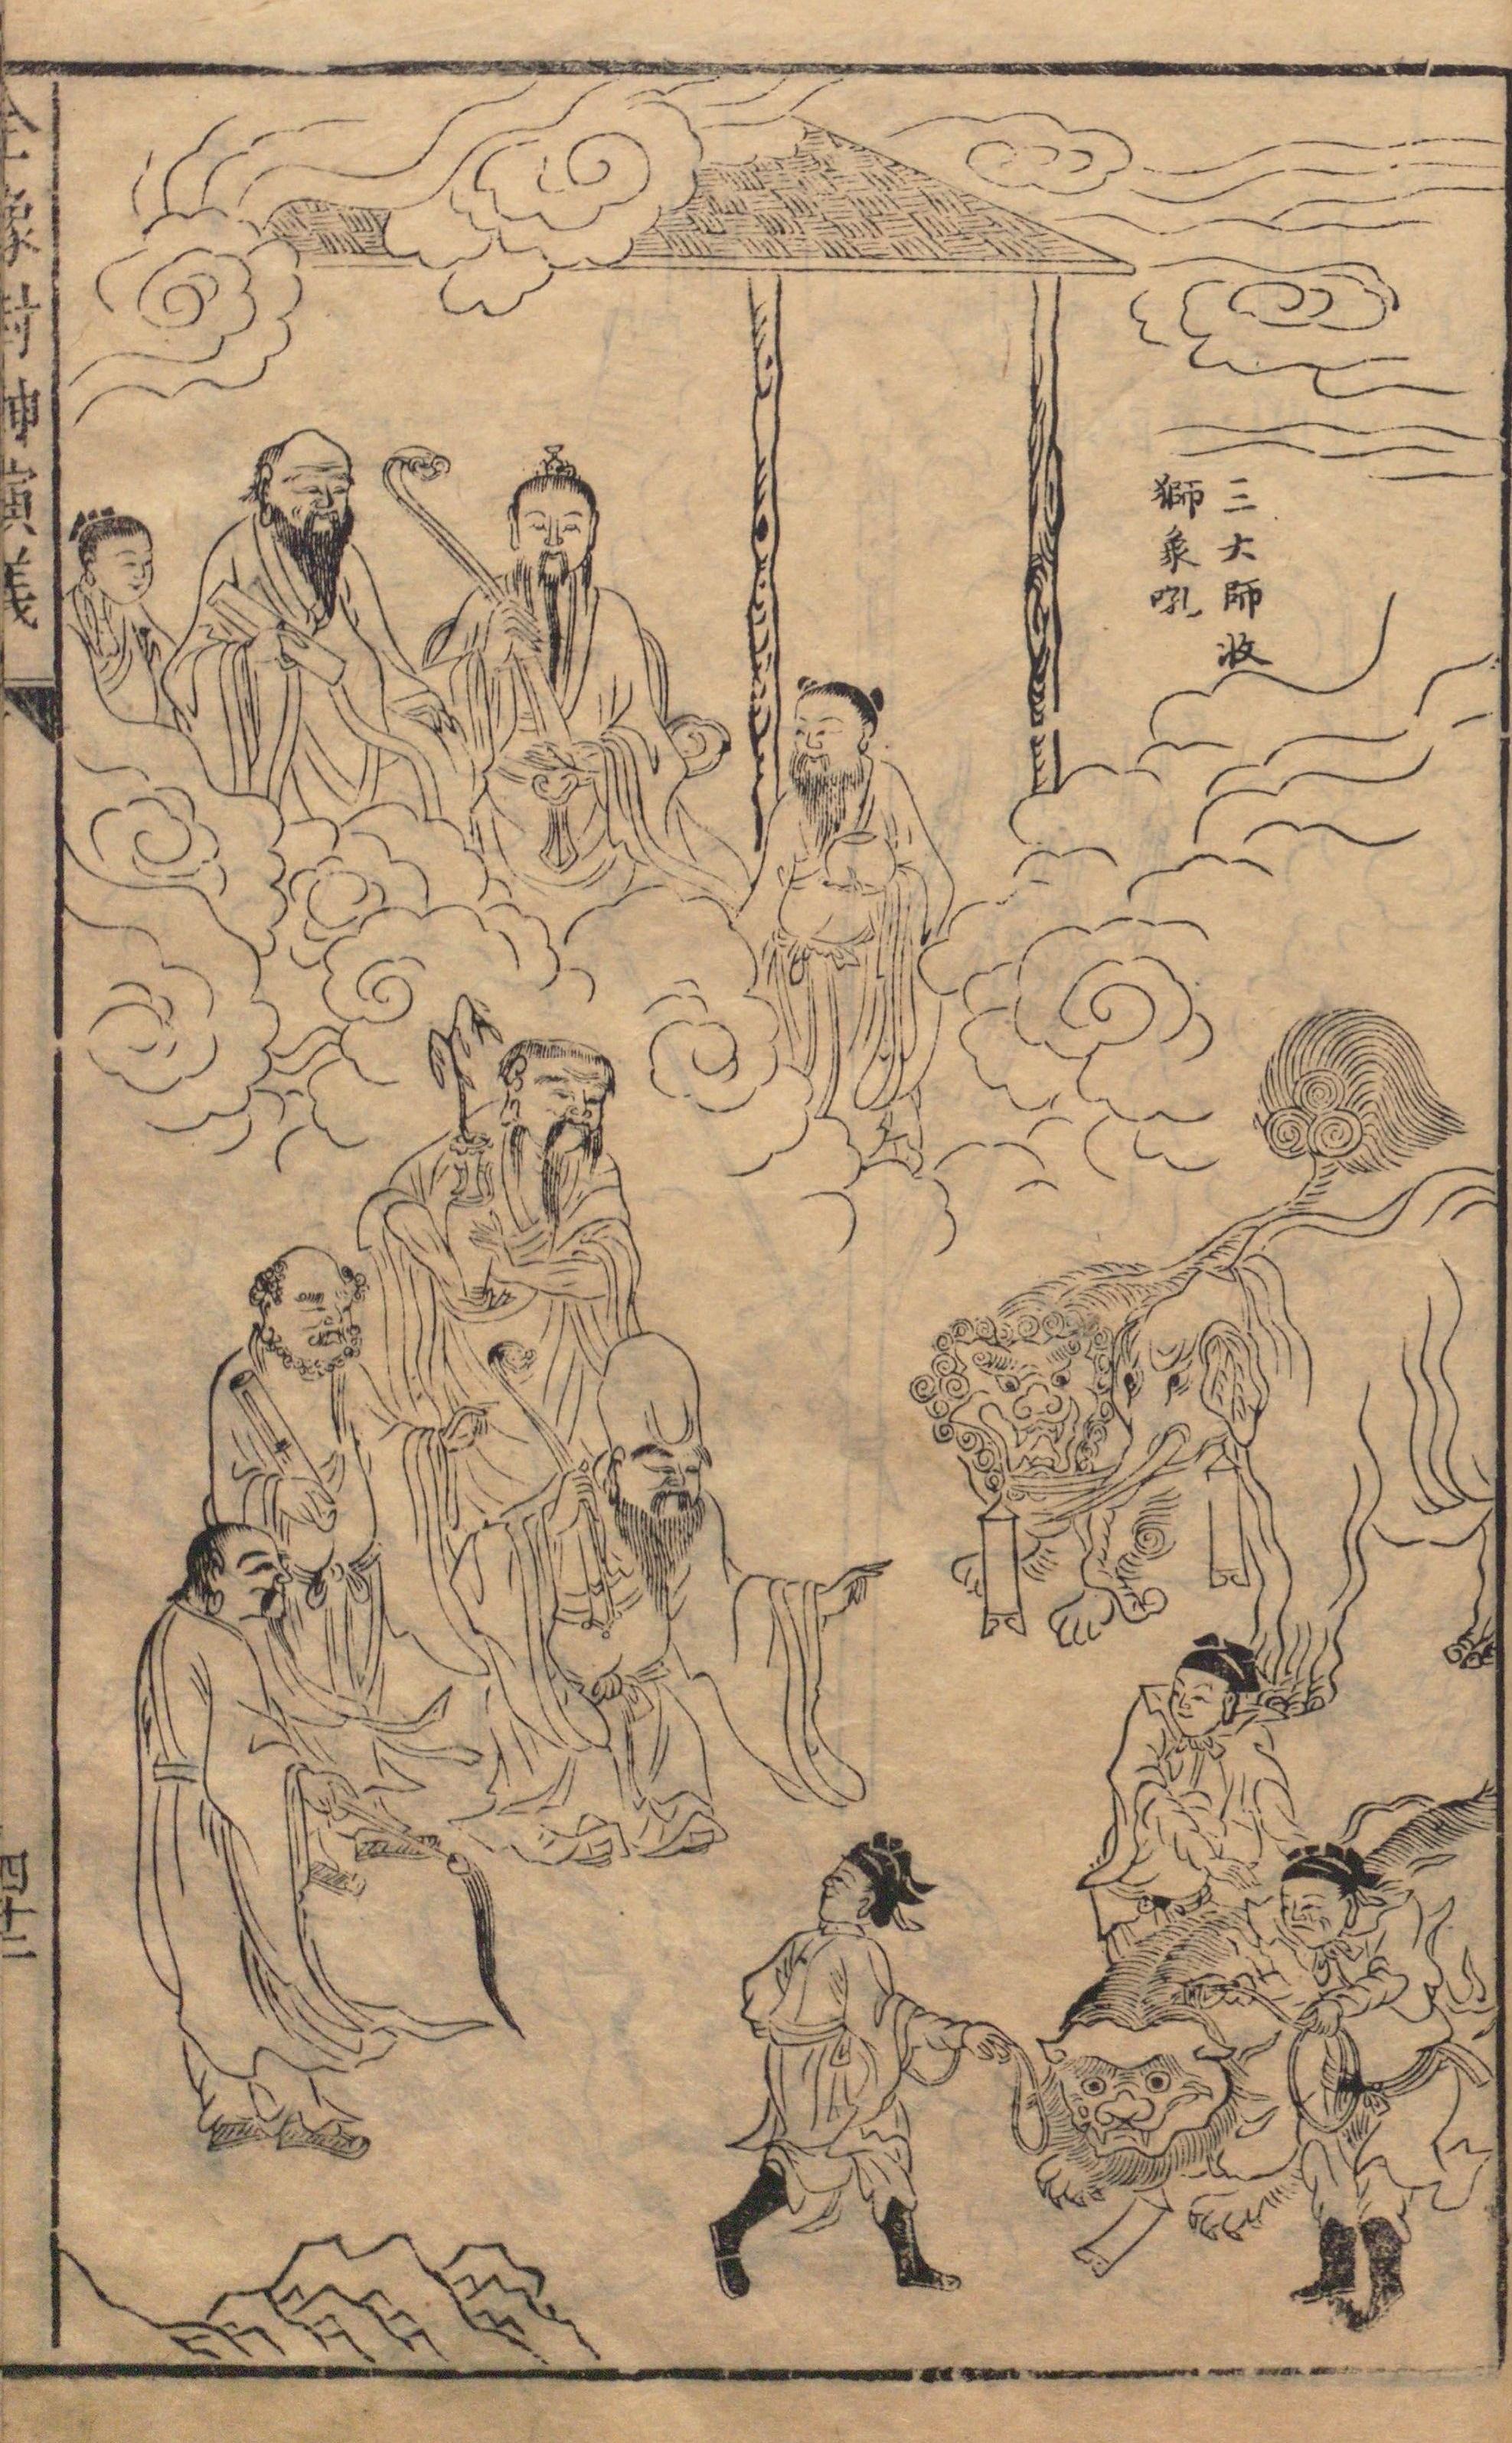 三大師收
獅象吼
全像封神演義
四十二